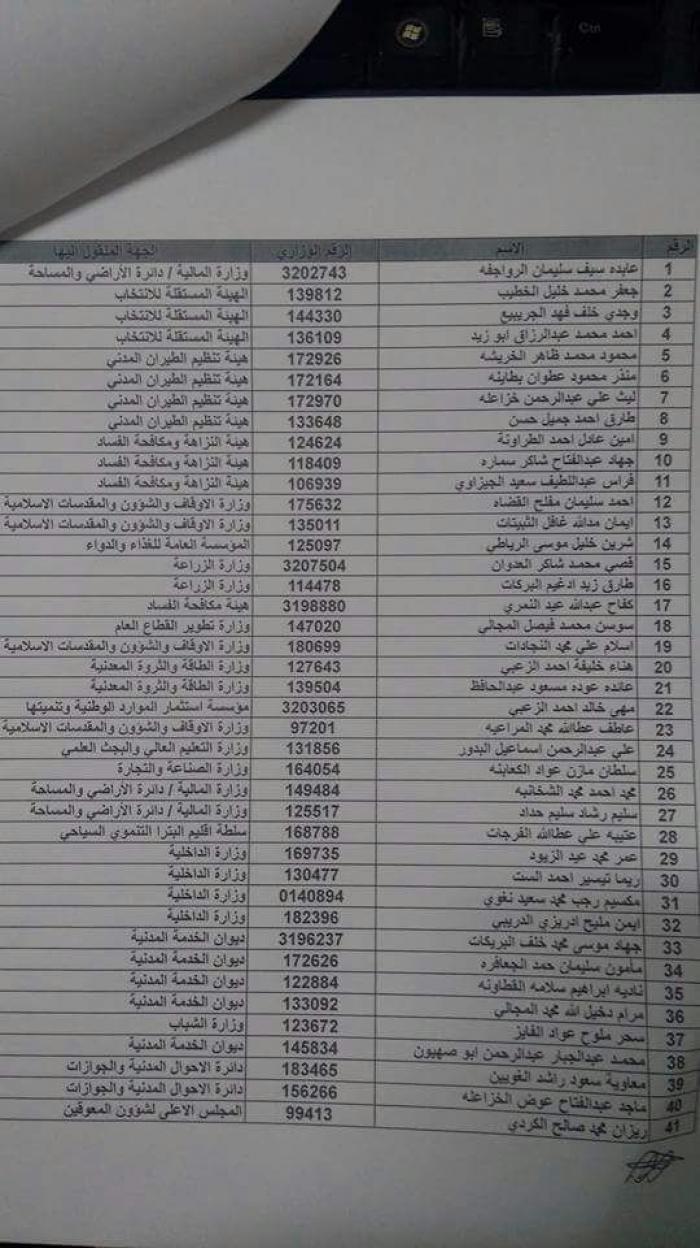 Ctrl
الرقم الاسم الرقم الوزاري الجهة المنقول اليها
1 عابده سيف سليمان الرواجفه 3202743 وزارة المالية / دائرة الأراضي والمساحة
2 جعفر محمد خليل الخطيب 139812 الهيئة المستقلة للانتخاب
3 وجدي خلف فهد الجريبيع 144330 الهيئة المستقلة للانتخاب
4 احمد محمد عبدالرزاق ابو زيد 136109 الهيئة المستقلة للانتخاب
5 محمود محمد ظاهر الخريشه 172926 هيئة تنظيم الطيران المدني
6 منذر محمود عطوان بطاينه 172164 هيئة تنظيم الطيران المدني
7 ليث علي عبدالرحمن خزاعله 172970 هيئة تنظيم الطيران المدني
8 طارق احمد جميل حسن 133648 هيئة تنظيم الطيران المدني
9 امين عادل احمد الطراونة 124624 هيئة النزاهة ومكافحة الفساد
10 جهاد عبدالفتاح شاكر سماره 118409 هيئة النزاهة ومكافحة الفساد
11 فراس عبداللطيف سعيد الجيزاوي 106939 هيئة النزاهة ومكافحة الفساد
12 احمد سليمان مفلح القضاه 175632 وزارة الاوقاف والشؤون والمقدسات الاسلامية
13 ايمان مدالله غافل الثبيتات 135011 وزارة الاوقاف والشؤون والمقدسات الاسلامية
14 شرين خليل موسى الرياطي 125097 المؤسسة العامة للغذاء والدواء
15 قصي محمد شاكر العدوان 3207504 وزارة الزراعة
16 طارق زيد ادغيم البركات 114478 وزارة الزراعة
17 كفاح عبدالله عيد النمري 3198880 هيئة مكافحة الفساد
18 سوسن محمد فيصل المجالي 147020 وزارة تطوير القطاع العام
19 اسلام علي محمد النجادات 180699 وزارة الاوقاف والشؤون والمقدسات الاسلامية
20 هناء خليفة احمد الزعبي 127643 وزارة الطاقة والثروة المعدنية
21 عائده عوده مسعود عبدالحافظ 139504 وزارة الطاقة والثروة المعدنية
22 مهى خالد احمد الزعبي 3203065 مؤسسة استثمار الموارد الوطنية وتنميتها
23 عاطف عطاالله محمد المراعيه 97201 وزارة الاوقاف والشؤون والمقدسات الاسلامية
24 علي عبدالرحمن اسماعيل البدور 131856 وزارة التعليم العالي والبحث العلمي
25 سلطان مازن عواد الكعابنه 164054 وزارة الصناعة والتجارة
26 محمد احمد محمد الشخانبه 149484 وزارة المالية / دائرة الأراضي والمساحة
27 سليم رشاد سليم حداد 125517 وزارة المالية / دائرة الأراضي والمساحة
28 عتيبه علي عطاالله الفرجات 168788 سلطة اقليم البترا التنموي السياحي
29 عمر محمد عيد الزيود 169735 وزارة الداخلية
30 ريما تيسير احمد الست 130477 وزارة الداخلية
31 مكسيم رجب محمد سعيد نغوي 0140894 وزارة الداخلية
32 ايمن مليح ادريزي الدريبي 182396 وزارة الداخلية
33 جهاد موسى محمد خلف البريكات 3196237 ديوان الخدمة المدنية
34 مأمون سليمان حمد الجعافره 172626 ديوان الخدمة المدنية
35 ناديه ابراهيم سلامه القطاونه 122884 ديوان الخدمة المدنية
36 مرام دخيل الله محمد المجالي 133092 ديوان الخدمة المدنية
37 سحر ملوح عواد الفايز 123672 وزارة الشباب
38 محمد عبدالجبار عبدالرحمن ابو صهيون 145834 ديوان الخدمة المدنية
39 معاوية سعود راشد الغويين 183465 دائرة الاحوال المدنية والجوازات
40 ماجد عبدالفتاح عوض الخزاعله 156266 دائرة الاحوال المدنية والجوازات
41 ريزان محمد صالح الكردي 99413 المجلس الاعلى لشؤون المعوقين